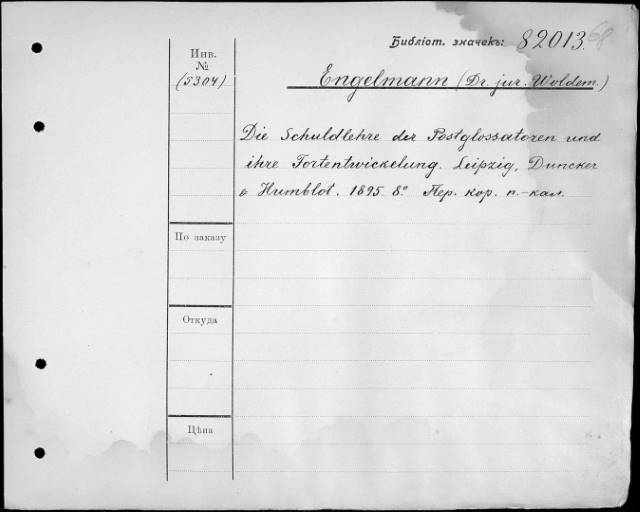 Библіот. значекъ: 82013 68
Инв.
№
(5304)
Engelmann (Dr. jur. Woldem.)
Die Schuldlehre der Postglossatoren und
ihre Fortentwickelung. Leipzig, Duncker
& Humblot. 1895. 8° Пер. кор. п.-кал.
По заказу
Откуда
Цѣна